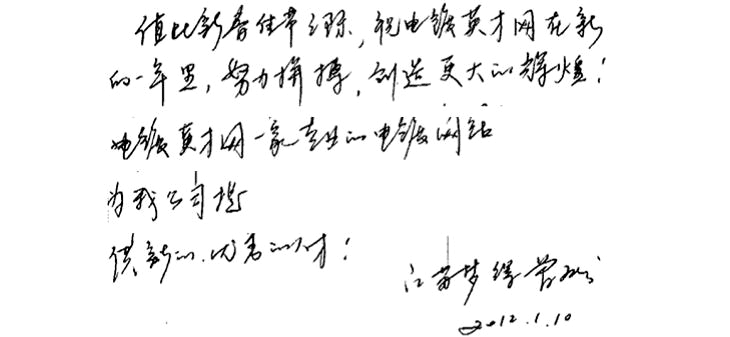 值此新春佳节之际,祝电镀英才网在新
的一年里,努力拼搏,创造更大的辉煌!
电镀英才网一家专业的电镀网站
为我公司提
供新的、优秀的人才!
江苏梦得
2012.1.10